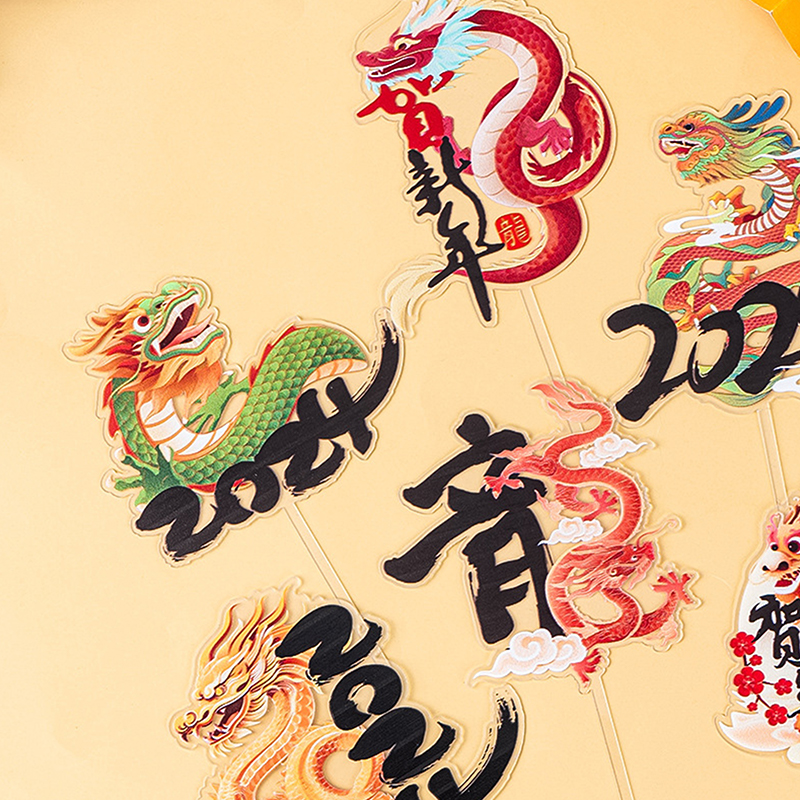 賀新年
龍
202
2024
龍
2024
賀